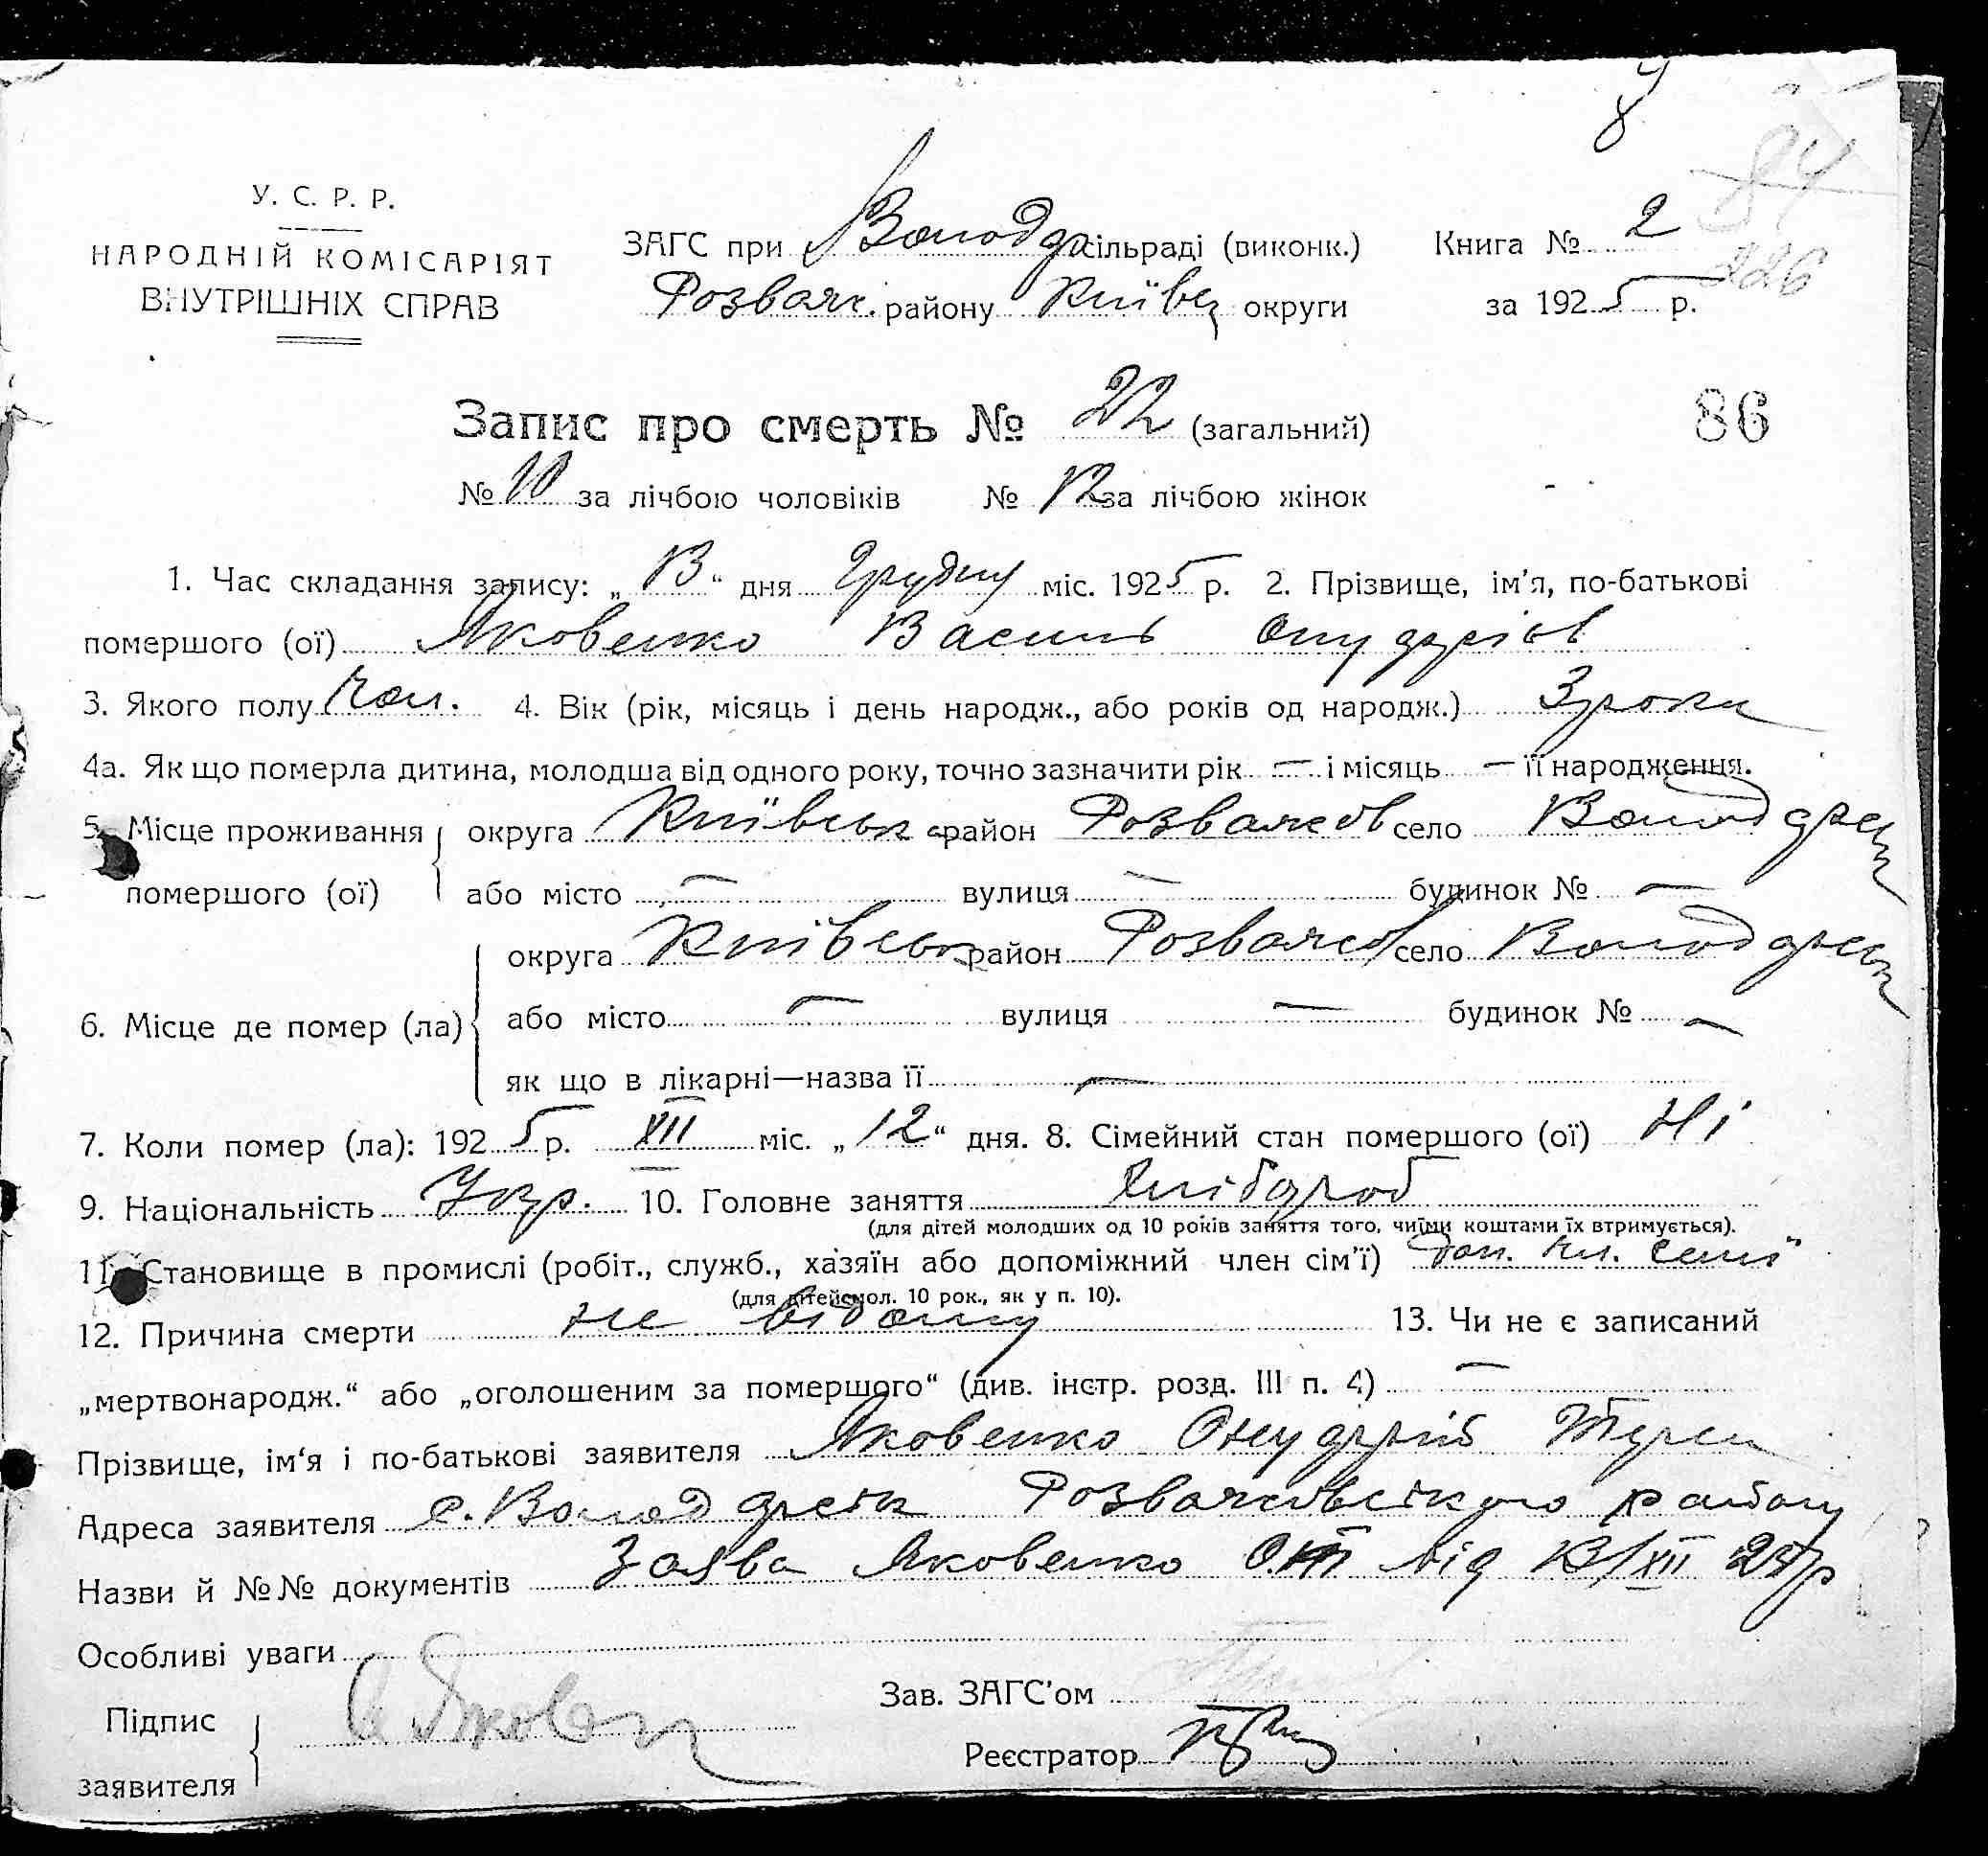 У. С. Р. Р.
НАРОДНІЙ КОМІСАРІЯТ
ВНУТРІШНІХ СПРАВ
ЗАГС при Володар сільраді (виконк.)
Розваж. району Київс округи
Книга № 2
за 1925 р.
84
226
86
Запис про смерть № 22 (загальний)
№ 10 за лічбою чоловіків № 12 за лічбою жінок
1. Час складання запису: „13“ дня Грудня міс. 1925 р. 2. Прізвище, ім'я, по-батькові
помершого (ої) Яковенко Василь Онудріїв
3. Якого полу Чол. 4. Вік (рік, місяць і день народж., або років од народж.) 3 роки
4а. Як що померла дитина, молодша від одного року, точно зазначити рік — і місяць — її народження.
5. Місце проживання округа Київськ район Розважов село Володарськ
помершого (ої) або місто — вулиця — будинок № —
округа Київськ район Розважов село Володарськ
6. Місце де помер (ла) або місто — вулиця — будинок № —
як що в лікарні—назва її —
7. Коли помер (ла): 1925 р. XII міс. „12“ дня. 8. Сімейний стан помершого (ої) Ні
9. Національність Укр. 10. Головне заняття Хлібороб
(для дітей молодших од 10 років заняття того, чиїми коштами їх втримується).
11. Становище в промислі (робіт., служб., хазяїн або допоміжний член сім'ї) Доп. чл. семї
(для дітей мол. 10 рок., як у п. 10).
12. Причина смерти не відому 13. Чи не є записаний
„мертвонародж.“ або „оголошеним за помершого“ (див. інстр. розд. III п. 4) —
Прізвище, ім'я і по-батькові заявителя Яковенко Онудрій
Адреса заявителя с. Володарськ Розважовського району
Назви й №№ документів Заява Яковенко від 13/XII 25 р
Особливі уваги
Підпис
заявителя
Яковен
Зав. ЗАГС'ом
Реєстратор